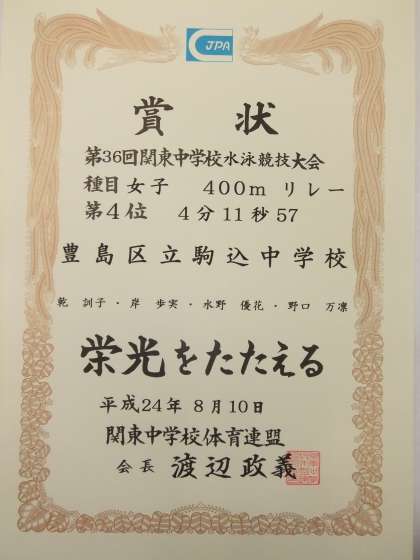 JPA
賞状
第36回関東中学校水泳競技大会
種目 女子 400m リレー
第4位 4分11秒57
豊島区立駒込中学校
乾 訓子・岸 歩実・水野 優花・野口 万凛
栄光をたたえる
平成24年 8月10日
関東中学校体育連盟
会長 渡辺政義